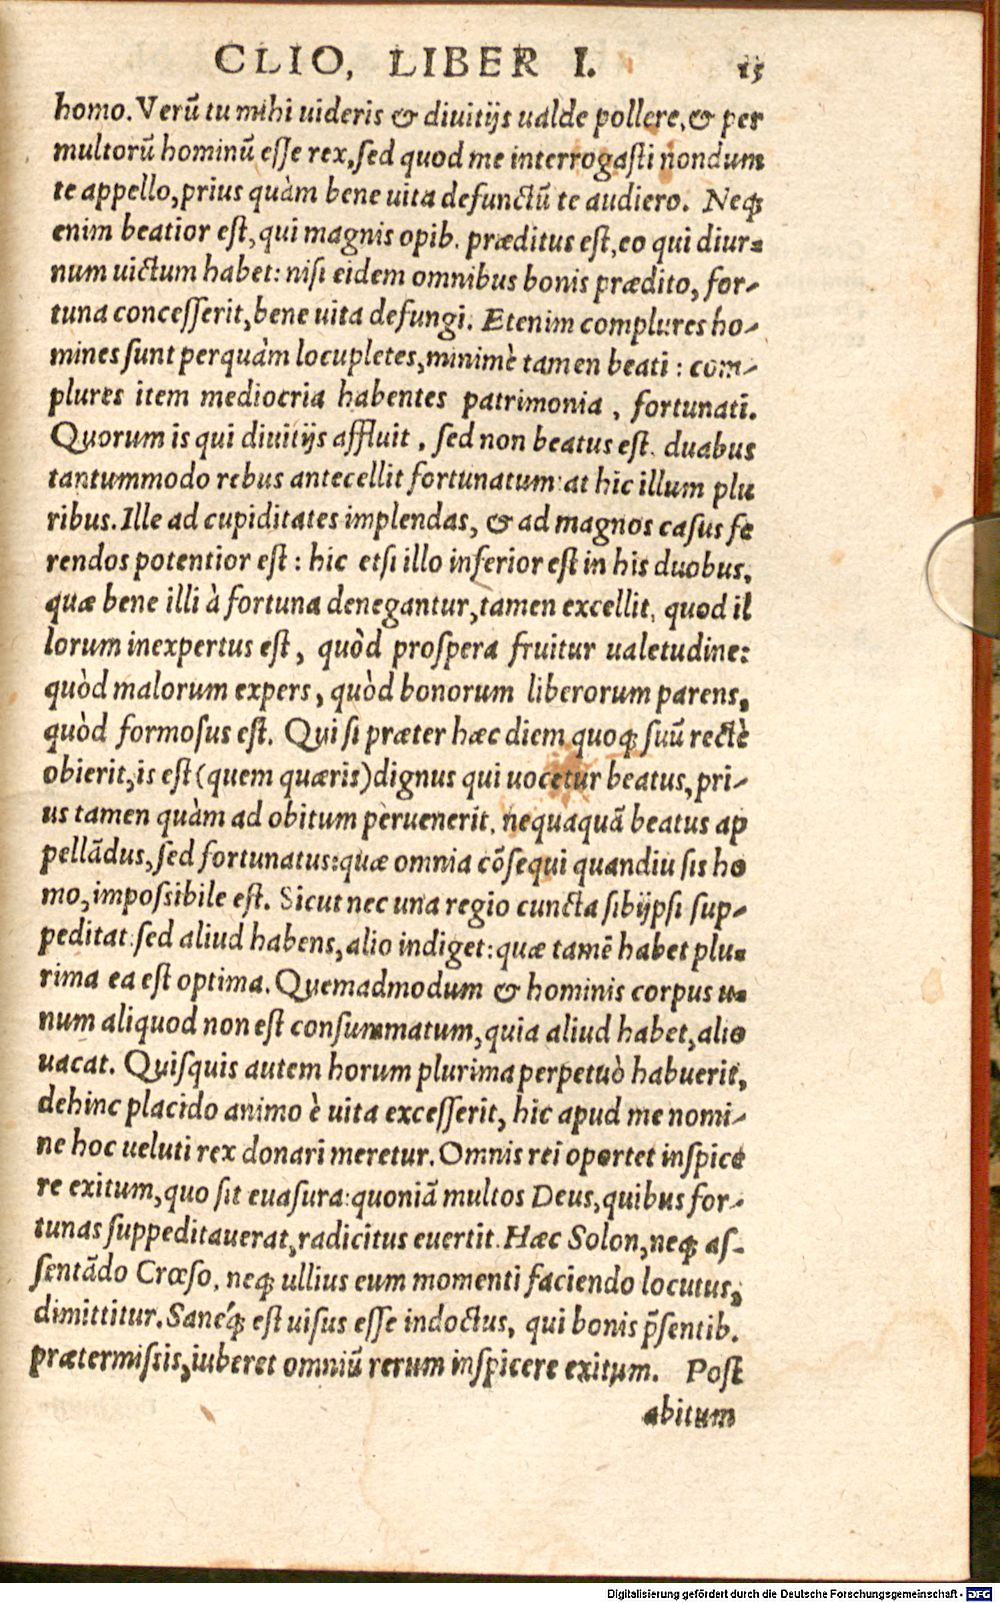 CLIO, LIBER I. 15
homo. Verũ tu mihi uideris & diuitijs ualde pollere, & per
multorũ hominũ eſſe rex, ſed quod me interrogaſti nondum
te appello, prius quàm bene uita defunctũ te audiero. Neq;
enim beatior eſt, qui magnis opib. præditus eſt, eo qui diur-
num uictum habet: niſi eidem omnibus bonis prædito, for-
tuna conceſſerit, bene uita defungi. Etenim complures ho-
mines ſunt perquàm locupletes, minimè tamen beati: com-
plures item mediocria habentes patrimonia, fortunati.
Quorum is qui diuitijs affluit, ſed non beatus eſt. duabus
tantummodo rebus antecellit fortunatum: at hic illum plu
ribus. Ille ad cupiditates implendas, & ad magnos caſus fe
rendos potentior eſt: hic etſi illo inferior eſt in his duobus,
quæ bene illi à fortuna denegantur, tamen excellit, quod il
lorum inexpertus eſt, quòd proſpera fruitur ualetudine:
quòd malorum expers, quòd bonorum liberorum parens,
quòd formoſus eſt. Qui ſi præter hæc diem quoq; ſuũ rectè
obierit, is eſt (quem quæris) dignus qui uocetur beatus, pri-
us tamen quàm ad obitum peruenerit, nequaquã beatus ap
pellãdus, ſed fortunatus: quæ omnia cõſequi quandiu ſis ho
mo, impoſsibile eſt. Sicut nec una regio cuncta ſibijpſi ſup-
peditat: ſed aliud habens, alio indiget: quæ tamẽ habet plu-
rima ea eſt optima. Quemadmodum & hominis corpus u-
num aliquod non eſt conſummatum, quia aliud habet, alio
uacat. Quiſquis autem horum plurima perpetuò habuerit,
dehinc placido animo è uita exceſſerit, hic apud me nomi-
ne hoc ueluti rex donari meretur. Omnis rei oportet inſpice
re exitum, quo ſit euaſura: quoniã multos Deus, quibus for-
tunas ſuppeditauerat, radicitus euertit. Hæc Solon, neq; aſ-
ſentãdo Crœſo, neq; ullius eum momenti faciendo locutus,
dimittitur. Sanéq; eſt uiſus eſſe indoctus, qui bonis p̃ſentib.
prætermiſsis, iuberet omniũ rerum inſpicere exitum. Poſt
abitum
Digitalisierung gefördert durch die Deutsche Forschungsgemeinschaft - DFG